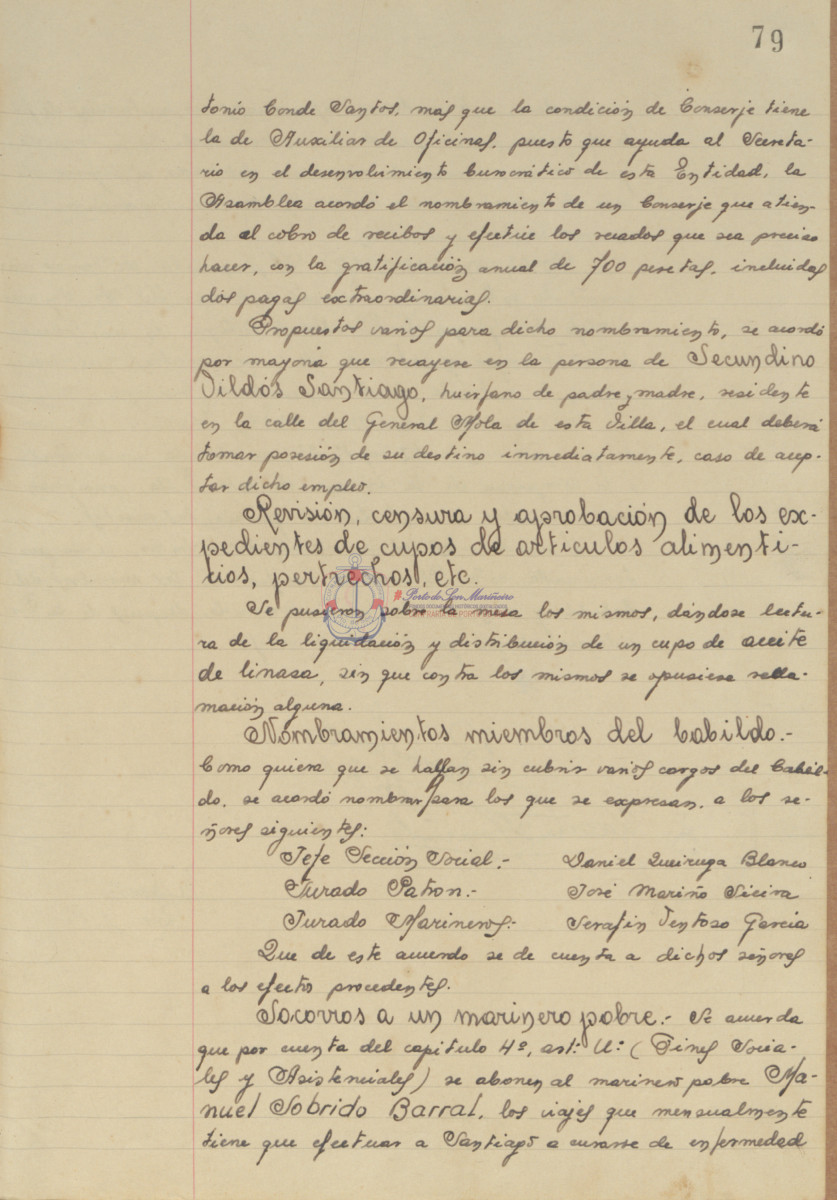 79
tonio Conde Santos, más que la condición de Conserje tiene
la de Auxiliar de Oficinas, puesto que ayuda al Secreta-
rio en el desenvolvimiento burocrático de esta Entidad, la
Asamblea acordó el nombramiento de un Conserje que atien-
da al cobro de recibos y efectúe los recados que sea preciso
hacer, con la gratificación anual de 700 pesetas, incluidas
dos pagas extraordinarias.
Propuestos varios para dicho nombramiento, se acordó
por mayoría que recayese en la persona de Secundino
Vildós Santiago, huérfano de padre y madre, residente
en la calle del General Mola de esta Villa, el cual deberá
tomar posesión de su destino inmediatamente, caso de acep-
tar dicho empleo.
Revisión, censura y aprobación de los ex-
pedientes de cupos de artículos alimenti-
cios, pertrechos, etc.
#PortodoSonMariñeiro
Se pusieron sobre la mesa los mismos, dándose lectu-
ra de la liquidación y distribución de un cupo de aceite
de linasa, sin que contra los mismos se opusiese recla-
mación alguna.
Nombramientos miembros del Cabildo.-
Como quiera que se hallan sin cubrir varios cargos del Cabil-
do, se acordó nombrar para los que se expresan, a los se-
ñores siguientes:
Jefe Sección Social.- Daniel Queiruga Blanco
Jurado Patron.- José Mariño Sieira
Jurado Marineros.- Serafin Ventoso García
Que de este acuerdo se de cuenta a dichos señores
a los efecto procedentes.
Socorros a un marinero pobre.- Se acuerda
que por cuenta del capitulo 4º, art.
(Fines Socia-
les y Asistenciales) se abonen al marinero pobre Ma-
nuel Sobrido Barral, los viajes que mensualmente
tiene que efectuar a Santiago a curarse de enfermedad